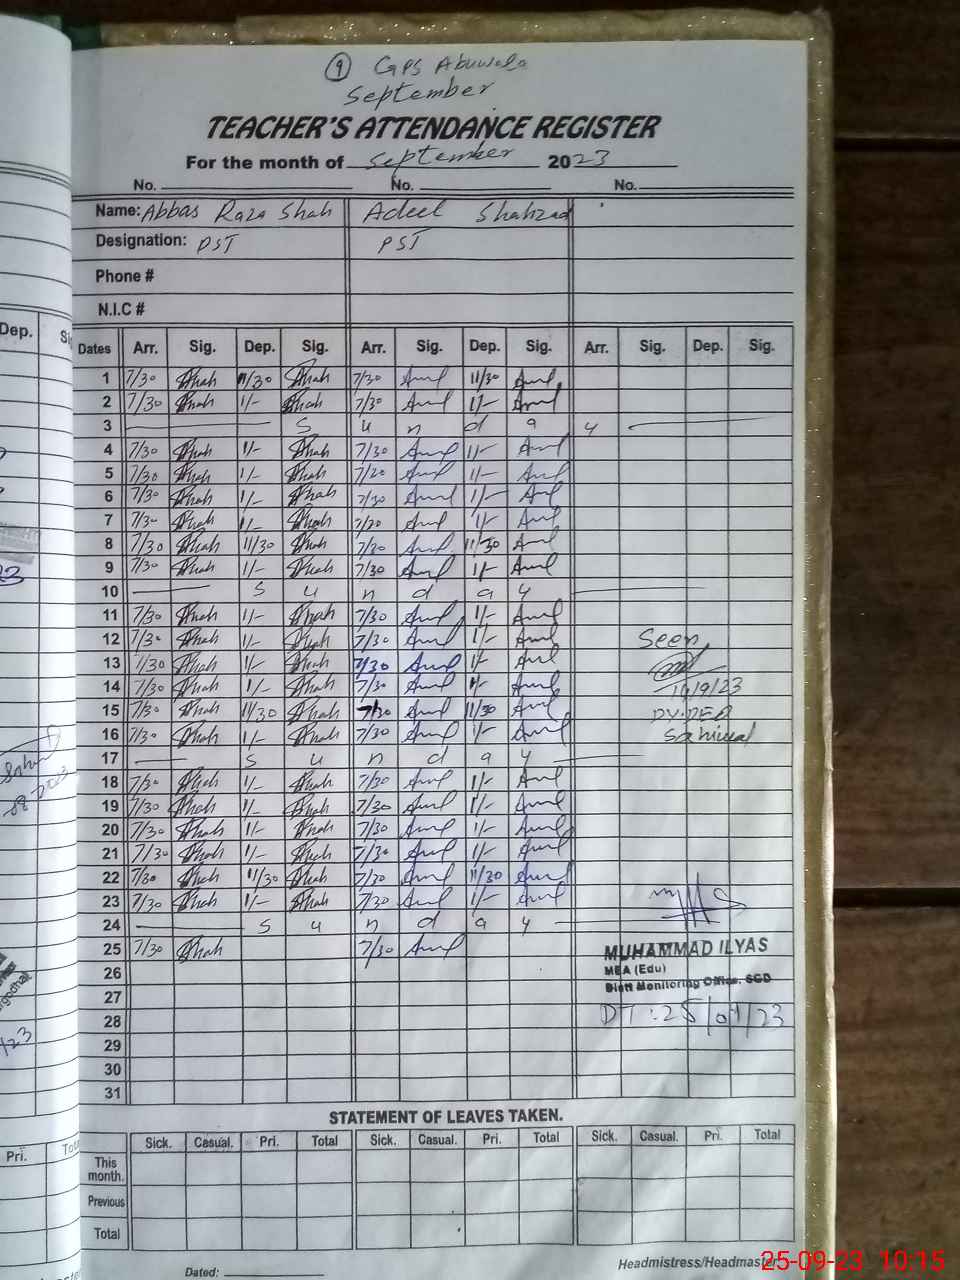 9 GPS Abuwala
September
TEACHER'S ATTENDANCE REGISTER
For the month of September 2023
No. No. No.
Name: Abbas Raza Shah Adeel Shahzad
Designation: PST PST
Phone #
N.I.C #
Dates Arr. Sig. Dep. Sig. Arr. Sig. Dep. Sig. Arr. Sig. Dep. Sig.
1 7/30 Shah 11/30 Shah 7/30 11/30
2 7/30 Shah 1/- Shah 7/30 1/-
3 S u n d a y
4 7/30 Shah 1/- Shah 7/30 1/-
5 7/30 Shah 1/- Shah 7/30 1/-
6 7/30 Shah 1/- Shah 7/30 1/-
7 7/30 Shah 1/- Shah 7/30 1/-
8 7/30 Shah 11/30 Shah 7/30 11/30
9 7/30 Shah 1/- Shah 7/30 1/-
10 S u n d a y
11 7/30 Shah 1/- Shah 7/30 1/-
12 7/30 Shah 1/- Shah 7/30 1/- Seen
13 7/30 Shah 1/- Shah 7/30 1/-
14 7/30 Shah 1/- Shah 7/30 1/- /9/23
15 7/30 Shah 11/30 Shah 7/30 11/30 DY.DEO
16 7/30 Shah 1/- Shah 7/30 1/- Sahiwal
17 S u n d a y
18 7/30 Shah 1/- Shah 7/30 1/-
19 7/30 Shah 1/- Shah 7/30 1/-
20 7/30 Shah 1/- Shah 7/30 1/-
21 7/30 Shah 1/- Shah 7/30 1/-
22 7/30 Shah 11/30 Shah 7/30 11/30
23 7/30 Shah 1/- Shah 7/30 1/-
24 S u n d a y
25 7/30 Shah 7/30 MUHAMMAD ILYAS
26 MEA (Edu)
27 Distt Monitoring Office. SGD
28 DT:25/09/23
29
30
31
STATEMENT OF LEAVES TAKEN.
Sick. Casual. Pri. Total Sick. Casual. Pri. Total Sick. Casual. Pri. Total
This month.
Previous
Total
Dated: Headmistress/Headmaster
25-09-23 10:15
Dep.
Pri.